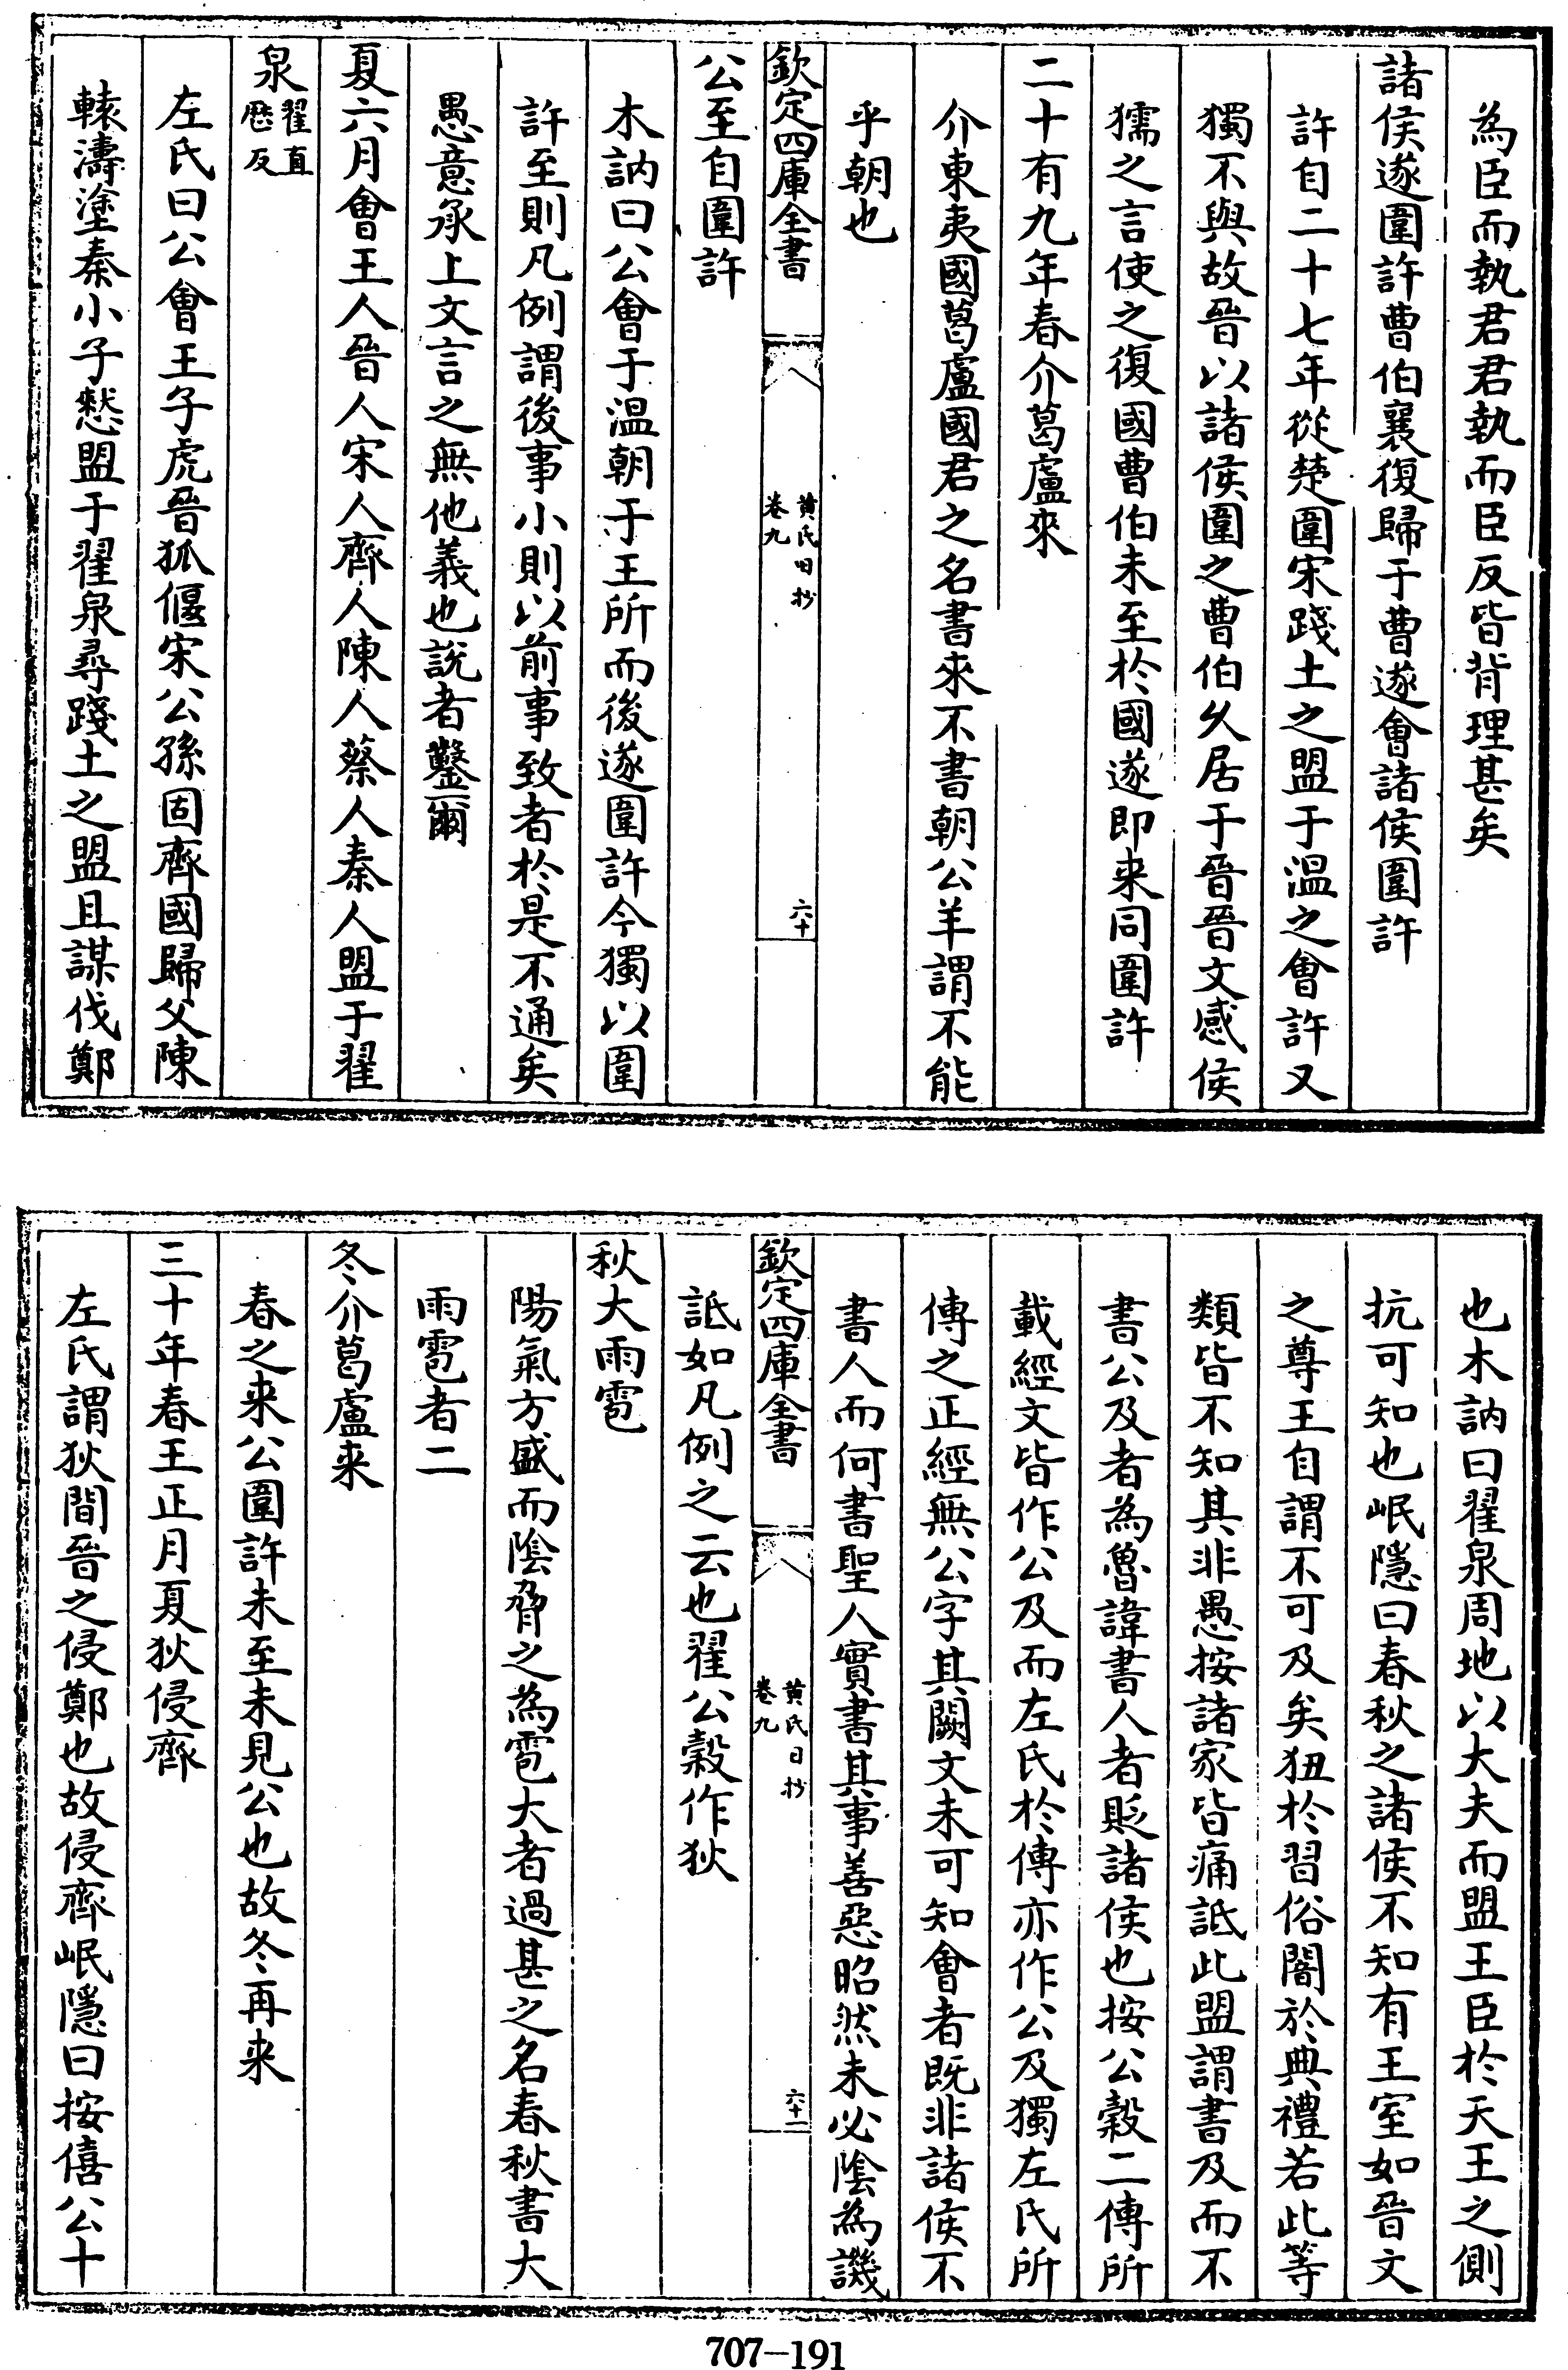 為臣而執君君執而臣反皆背理甚矣
諸侯遂圍許曹伯襄復歸于曹遂會諸侯圍許
許自二十七年從楚圍宋踐土之盟于溫之會許又
獨不與故晉以諸侯圍之曹伯乆居于晉晉文感侯
獳之言使之復國曹伯未至於國遂即来同圍許
二十有九年春介葛盧來
介東夷國葛盧國君之名書來不書朝公羊謂不能
乎朝也
欽定四庫全書
黄氏日抄
卷九
六十
公至自圍許
木訥曰公會于温朝于王所而後遂圍許今獨以圍
許至則凡例謂後事小則以前事致者於是不通矣
愚意承上文言之無他義也説者鑿爾
夏六月會王人晉人宋人齊人陳人蔡人秦人盟于翟
泉翟直歷反
左氏曰公會王子虎晉狐偃宋公孫固齊國歸父陳
轅濤塗秦小子憖盟于翟泉尋踐土之盟且謀伐鄭
也木訥曰翟泉周地以大夫而盟王臣於天王之側
抗可知也岷隱曰春秋之諸侯不知有王室如晉文
之尊王自謂不可及矣狃於習俗闇於典禮若此等
類皆不知其非愚按諸家皆痛詆此盟謂書及而不
書公及者為魯諱書人者貶諸侯也按公穀二傳所
載經文皆作公及而左氏於傳亦作公及獨左氏所
傳之正經無公字其闕文未可知會者既非諸侯不
書人而何書聖人實書其事善惡昭然未必陰為譏
欽定四庫全書
黄氏日抄
卷九
六十一
詆如凡例之云也翟公穀作狄
秋大雨雹
陽氣方盛而陰脅之為雹大者過甚之名春秋書大
雨雹者二
冬介葛盧来
春之来公圍許未至未見公也故冬再来
三十年春王正月夏狄侵齊
左氏謂狄間晉之侵鄭也故侵齊岷隱曰按僖公十
707-191